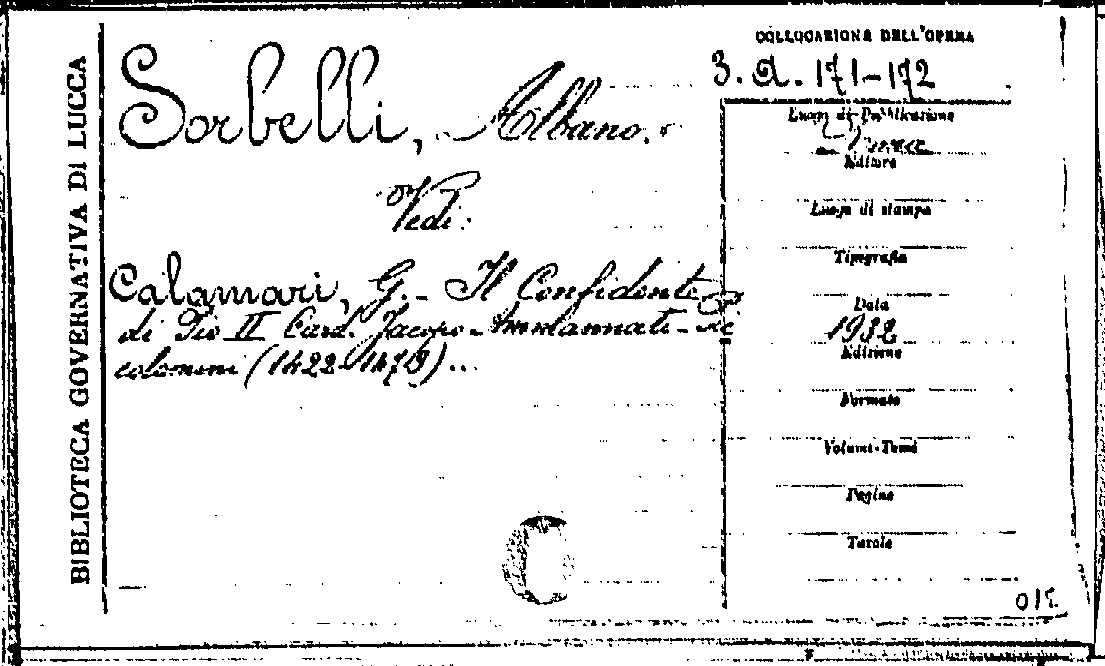 BIBLIOTECA GOVERNATIVA DI LUCCA
Sorbelli, Albano.
Vedi:
Calamari, G. - Il Confidente
di Pio II Card. Jacopo Ammannati-Pic
colomini (1422-1479)..
COLLOCAZIONE DELL'OPERA
3. a. 171-172
Luogo di Pubblicazione
Editore
Luogo di stampa
Tipografia
Data
1932
Edizione
Formato
Volumi-Tomi
Pagine
Tavole